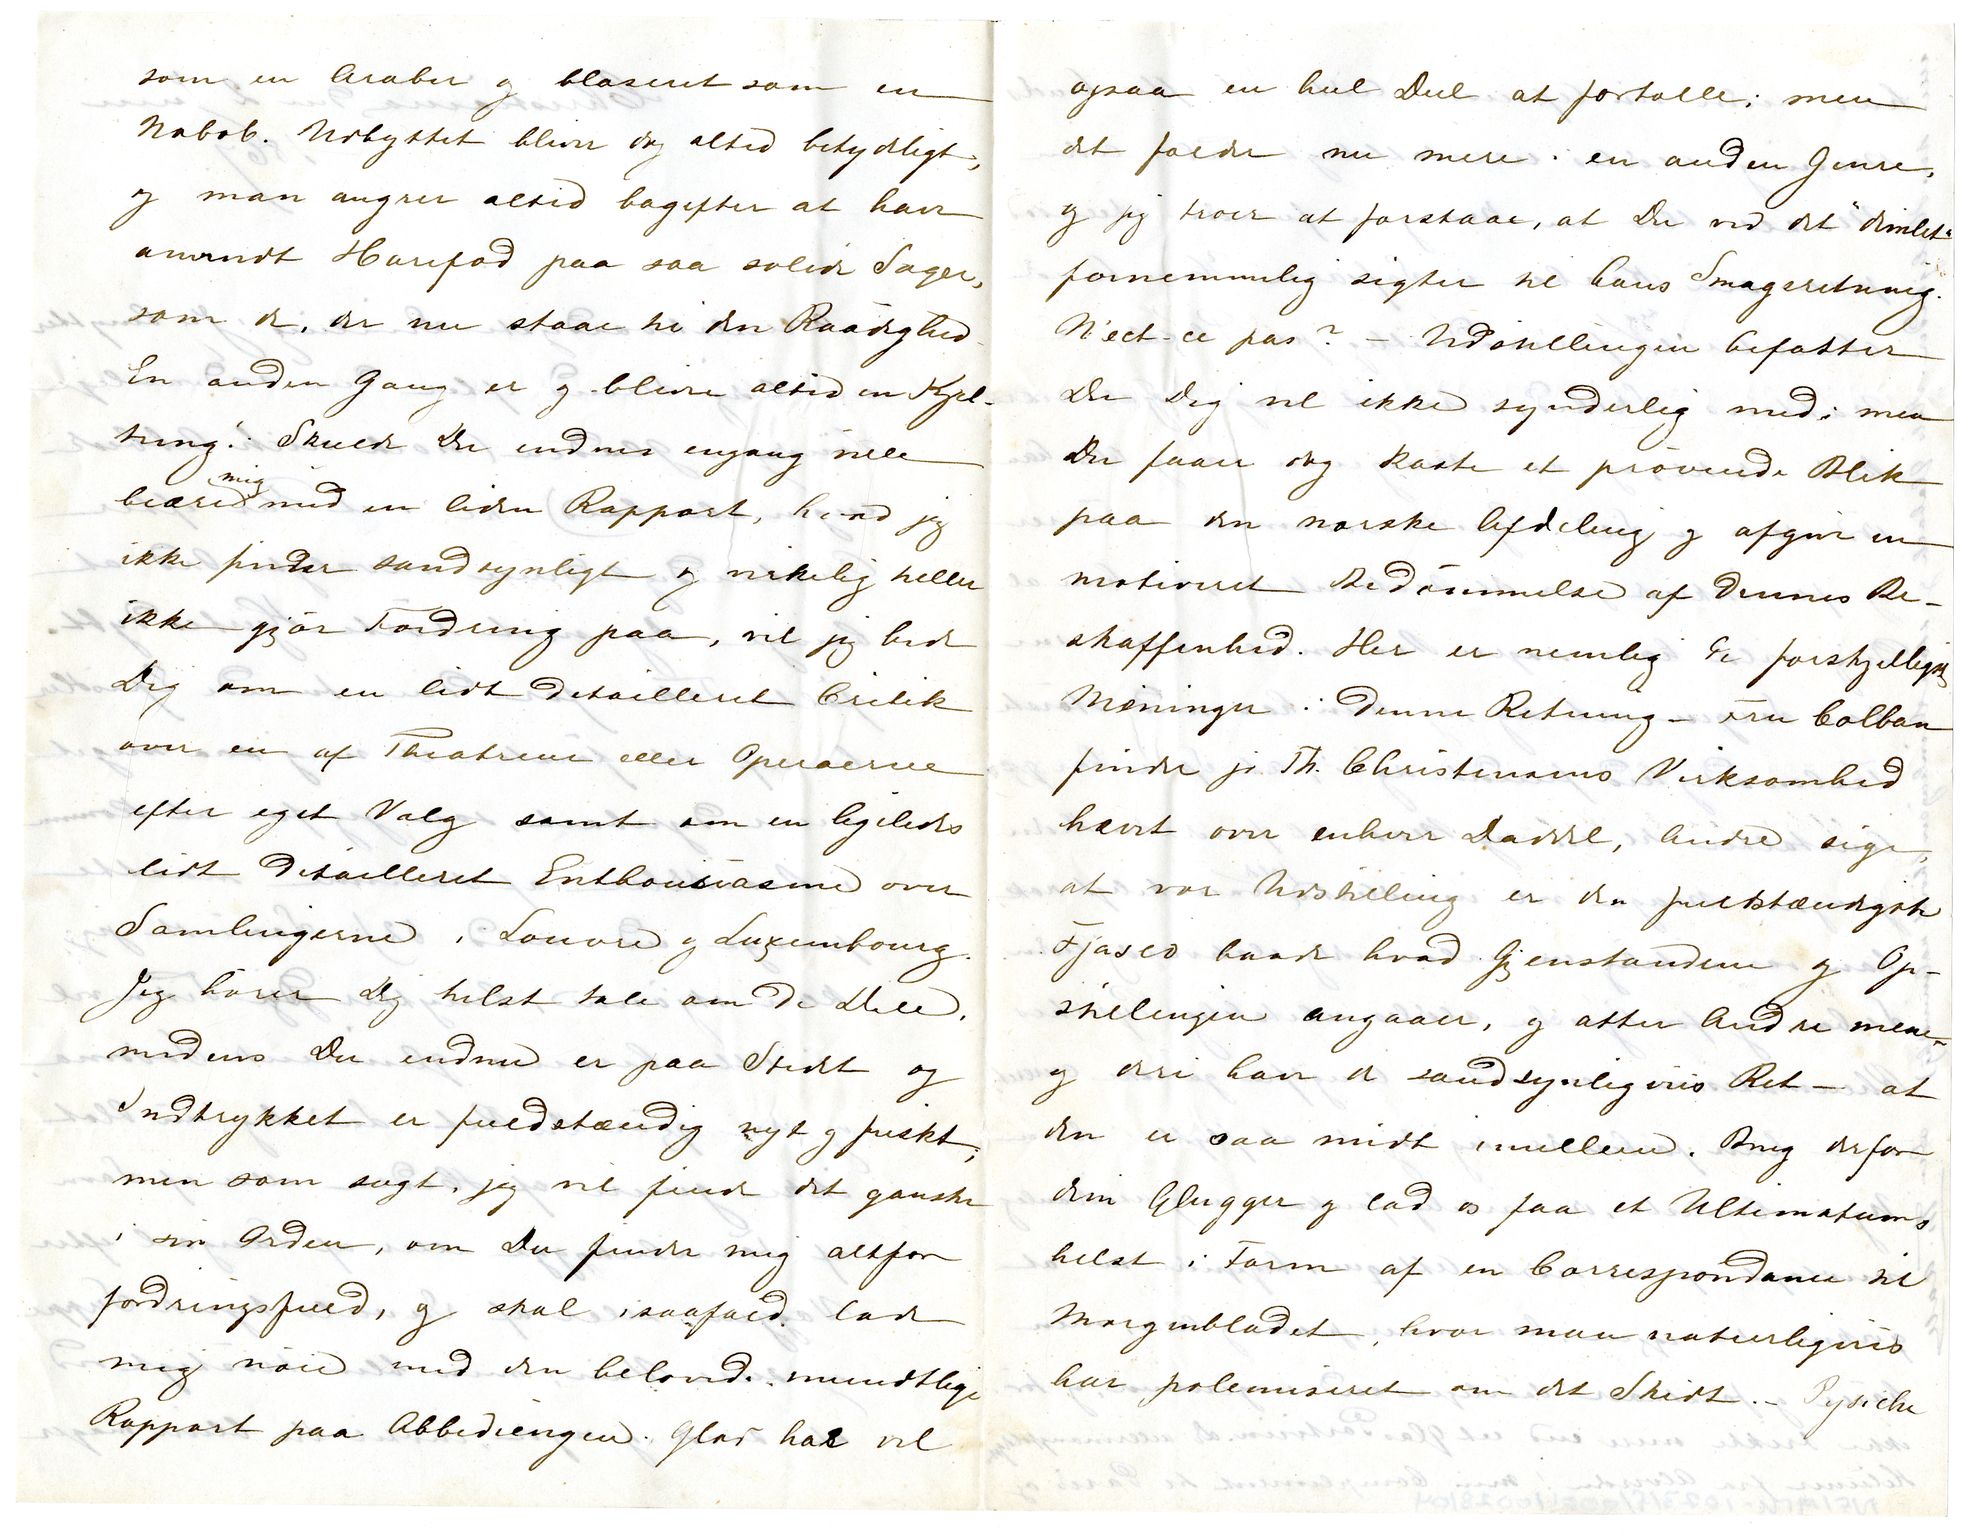 som en Araber og blaseret som en
Nabob. Udbyttet bliver dog altid betydeligt,
og man angrer altid bagefter at have
anvendt Harefod paa saa solide Sager,
som de, der nu staae til din Raadighed.
En anden Gang er og bliver altid en Kjel-
tring! Skulde Du endnu engang ville
beære mig med en liden Rapport, hvad jeg
ikke finder sandsynligt og virkelig heller
ikke gjör Fordring paa, vil jeg bede
Dig om en lidt detailleret Critik
over en af Theatrene eller Operaerne
efter eget Valg samt om en ligeledes
lidt detailleret Enthousiasme over
Samlingerne i Louvre og Luxembourg.
Jeg hörer Dig helst tale om de Dele,
medens Du endnu er paa Stedet og
Indtrykket er fuldstændig nyt og friskt;
men som sagt, jeg vil finde det ganske
i sin Orden, om Du finder mig altfor
fordringsfuld, og skal isaafald lade
mig nöie med den belovede mundtlige
Rapport paa Abbediengen. Glad har vel
ogsaa en heel Deel at fortælle; men
det falder nu mere i en anden Genre,
og jeg troer at forstaae, at Du ved det "dimlet"
fornemmelig sigter til hans Smagsretning.
N'est-ce pas? – Udstillingen befatter
Du Dig vel ikke synderlig med; men
Du faaer dog kaste et prövende Blik
paa den norske Afdeling og afgive en
motiveret Bedömmelse af dennes Be-
skaffenhed. Her er nemlig de forskjelligste
Meninger i denne Retning – Fru Colban
finder jo Th. Christensens Virksomhed
hævet over enhver Daddel, Andre sige,
at vor Udstilling er den fuldstændigste
Fjasco baade hvad Gjenstandene og Op-
stillingen angaaer, og atter Andre mene –
og deri have de sandsynligviis Ret – at
den er saa midt imellem. Brug derfor
dine Glugger og lad os faa et Ultimatum
helst i Form af en Correspondance til
Morgenbladet, hvor man naturligviis
har polemiseret om det Skidt. –